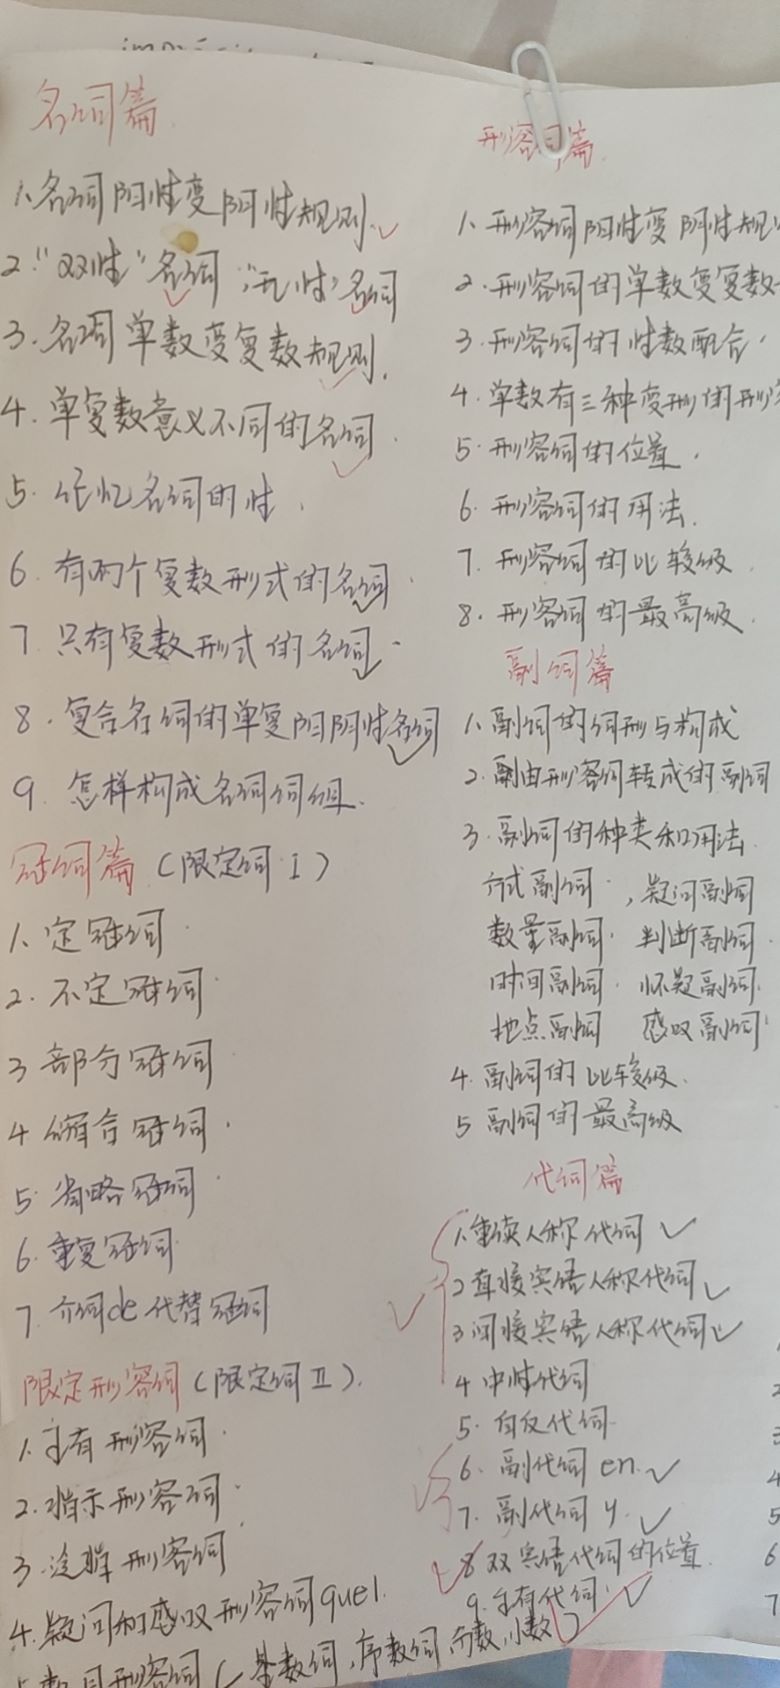 名词篇
1.名词阳性变阴性规则.
2."双性"名词,"无性"名词
3.名词单数变复数规则.
4.单复数意义不同的名词.
5.记忆名词的性.
6.有两个复数形式的名词.
7.只有复数形式的名词.
8.复合名词的单复阳阴性名词
9.怎样构成名词词组.
冠词篇(限定词Ⅰ)
1.定冠词.
2.不定冠词.
3 部分冠词
4 缩合冠词.
5.省略冠词.
6.重复冠词.
7.介词de代替冠词
限定形容词(限定词Ⅱ).
1.主有形容词.
2.指示形容词.
3.泛指形容词
4.疑问和感叹形容词quel.
5.数目形容词(基数词,序数词,分数,小数)
形容词篇
1.形容词阳性变阴性规
2.形容词的单数变复数
3.形容词的性数配合.
4.单数有三种变形的形
5.形容词的位置.
6.形容词的用法.
7.形容词的比较级.
8.形容词的最高级.
副词篇
1.副词的词形与构成
2.由形容词转成的副词
3.副词的种类和用法
方式副词.,疑问副词
数量副词. 判断副词.
时间副词. 怀疑副词.
地点副词 感叹副词
4.副词的比较级.
5 副词的最高级
代词篇
1.重读人称代词
2 直接宾语人称代词
3 间接宾语人称代词
4 中性代词
5.自反代词
6.副代词en.
7.副代词y.
8 双宾语代词的位置.
9.主有代词.